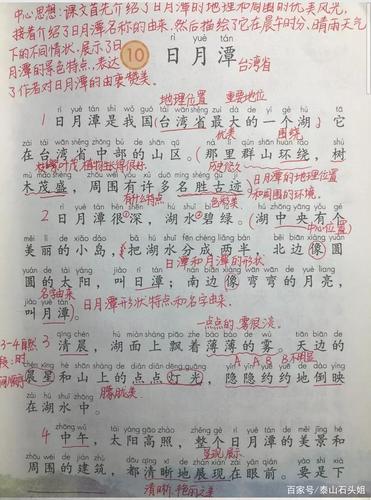 中心思想:课文首先介绍了日月潭的地理和周围的优美风光,
接着介绍了日月潭名称的由来,然后描绘了它在晨午时分、晴雨天气
下的不同情状,展示了日
月潭的景色特点,表达
了作者对日月潭的由衷赞美。
rì yuè tán
10 日月潭
台湾省
地理位置 重要地位
rì yuè tán shì wǒ guó tái wān shěng zuì dà de yí gè hú tā
1 日月潭是我国(台湾省最大的一个湖。它
优美 围绕
zài tái wān shěng zhōng bù de shān qū nà lǐ qún shān huán rào shù
在台湾省中部的山区。(那里群山环绕,树
历史悠久
mù mào shèng zhōu wéi yǒu xǔ duō míng shèng gǔ jì
木茂盛,周围有许多名胜古迹。
日月潭的地理位置
和周围的环境。
有什么特点
rì yuè tán hěn shēn hú shuǐ bì lǜ hú zhōng yāng yǒu gè
2 日月潭很深,湖水碧绿。(湖中央有个
中心位置
měi lì de xiǎo dǎo bǎ hú shuǐ fēn chéng liǎng bàn běi biān xiàng yuán
美丽的小岛,把湖水分成两半,北边像圆
日潭和月潭的形状
yuán de tài yáng jiào rì tán nán biān xiàng wān wān de yuè liang
圆的太阳,叫日潭;南边像弯弯的月亮,
名字由来
jiào yuè tán
叫月潭。)
日月潭形状特点和名字由来。
一点点的 雾很淡。
qīng chén hú miàn shàng piāo zhe báo báo de wù tiān biān de
3 清晨,湖面上飘着薄薄的雾。天边的
3-4自然
段:时
间顺序
A A B B 不明显
chén xīng hé shān shàng de diǎn diǎn dēng guāng yǐn yǐn yuē yuē de dào yìng
晨星和山上的点点灯光,隐隐约约地倒映
zài hú shuǐ zhōng
在湖水中。
朦胧美
zhōng wǔ tài yáng gāo zhào zhěng gè rì yuè tán de měi jǐng hé
4 中午,太阳高照,整个日月潭的美景和
呈现、展示
zhōu wéi de jiàn zhù dōu qīng xī de zhǎn xiàn zài yǎn qián yào shì xià
周围的建筑,都清晰地展现在眼前。要是下
清晰、艳丽之美
百家号/泰山石头姐